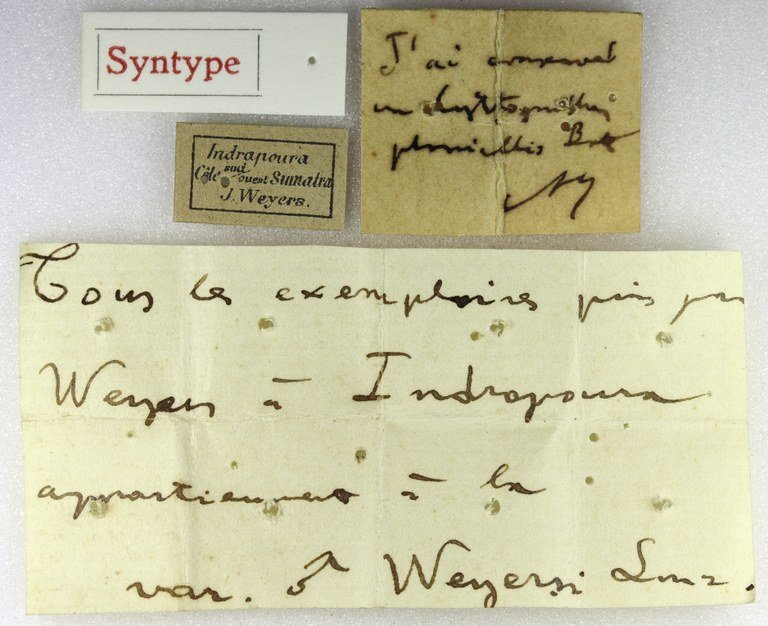 Syntype
J'ai conservé
un
planicollis
Indrapoura
Côte sud ouest Sumatra
J. Weyers.
Tous les exemplaires pris par
Weyers à Indrapoura
appartiennent à la
var. ♂ Weyersi